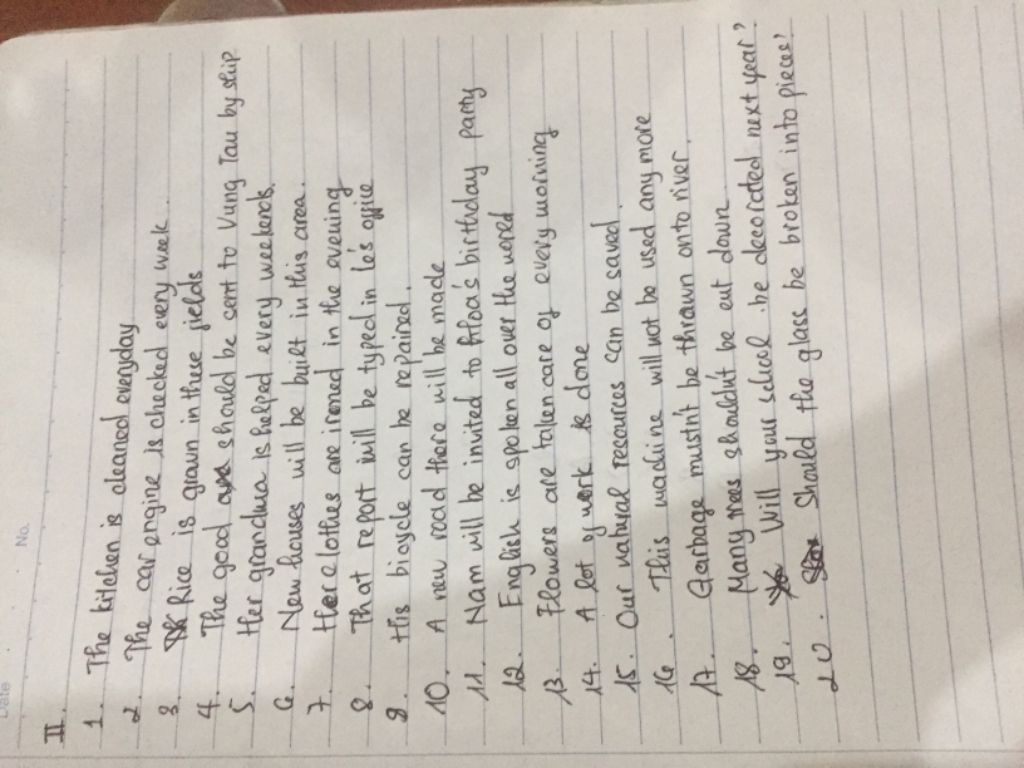 Date
No.
II.
1. The kitchen is cleaned everyday
2. The car engine is checked every week.
3. Rice is grown in these fields
4. The good should be sent to Vung Tau by ship
5. Her grandma is helped every weekends.
6. New houses will be built in this area.
7. Here clothes are ironed in the evening
8. That report will be typed in le's office
9. His bicycle can be repaired.
10. A new road there will be made
11. Nam will be invited to Hoa's birthday party
12. English is spoken all over the world
13. Flowers are taken care of every morning
14. A lot of work is done
15. Our natural resources can be saved.
16. This machine will not be used any more
17. Garbage mustn't be thrown onto river.
18. Many trees shouldn't be cut down
19. Will your school be decorated next year?
20. Should the glass be broken into pieces?